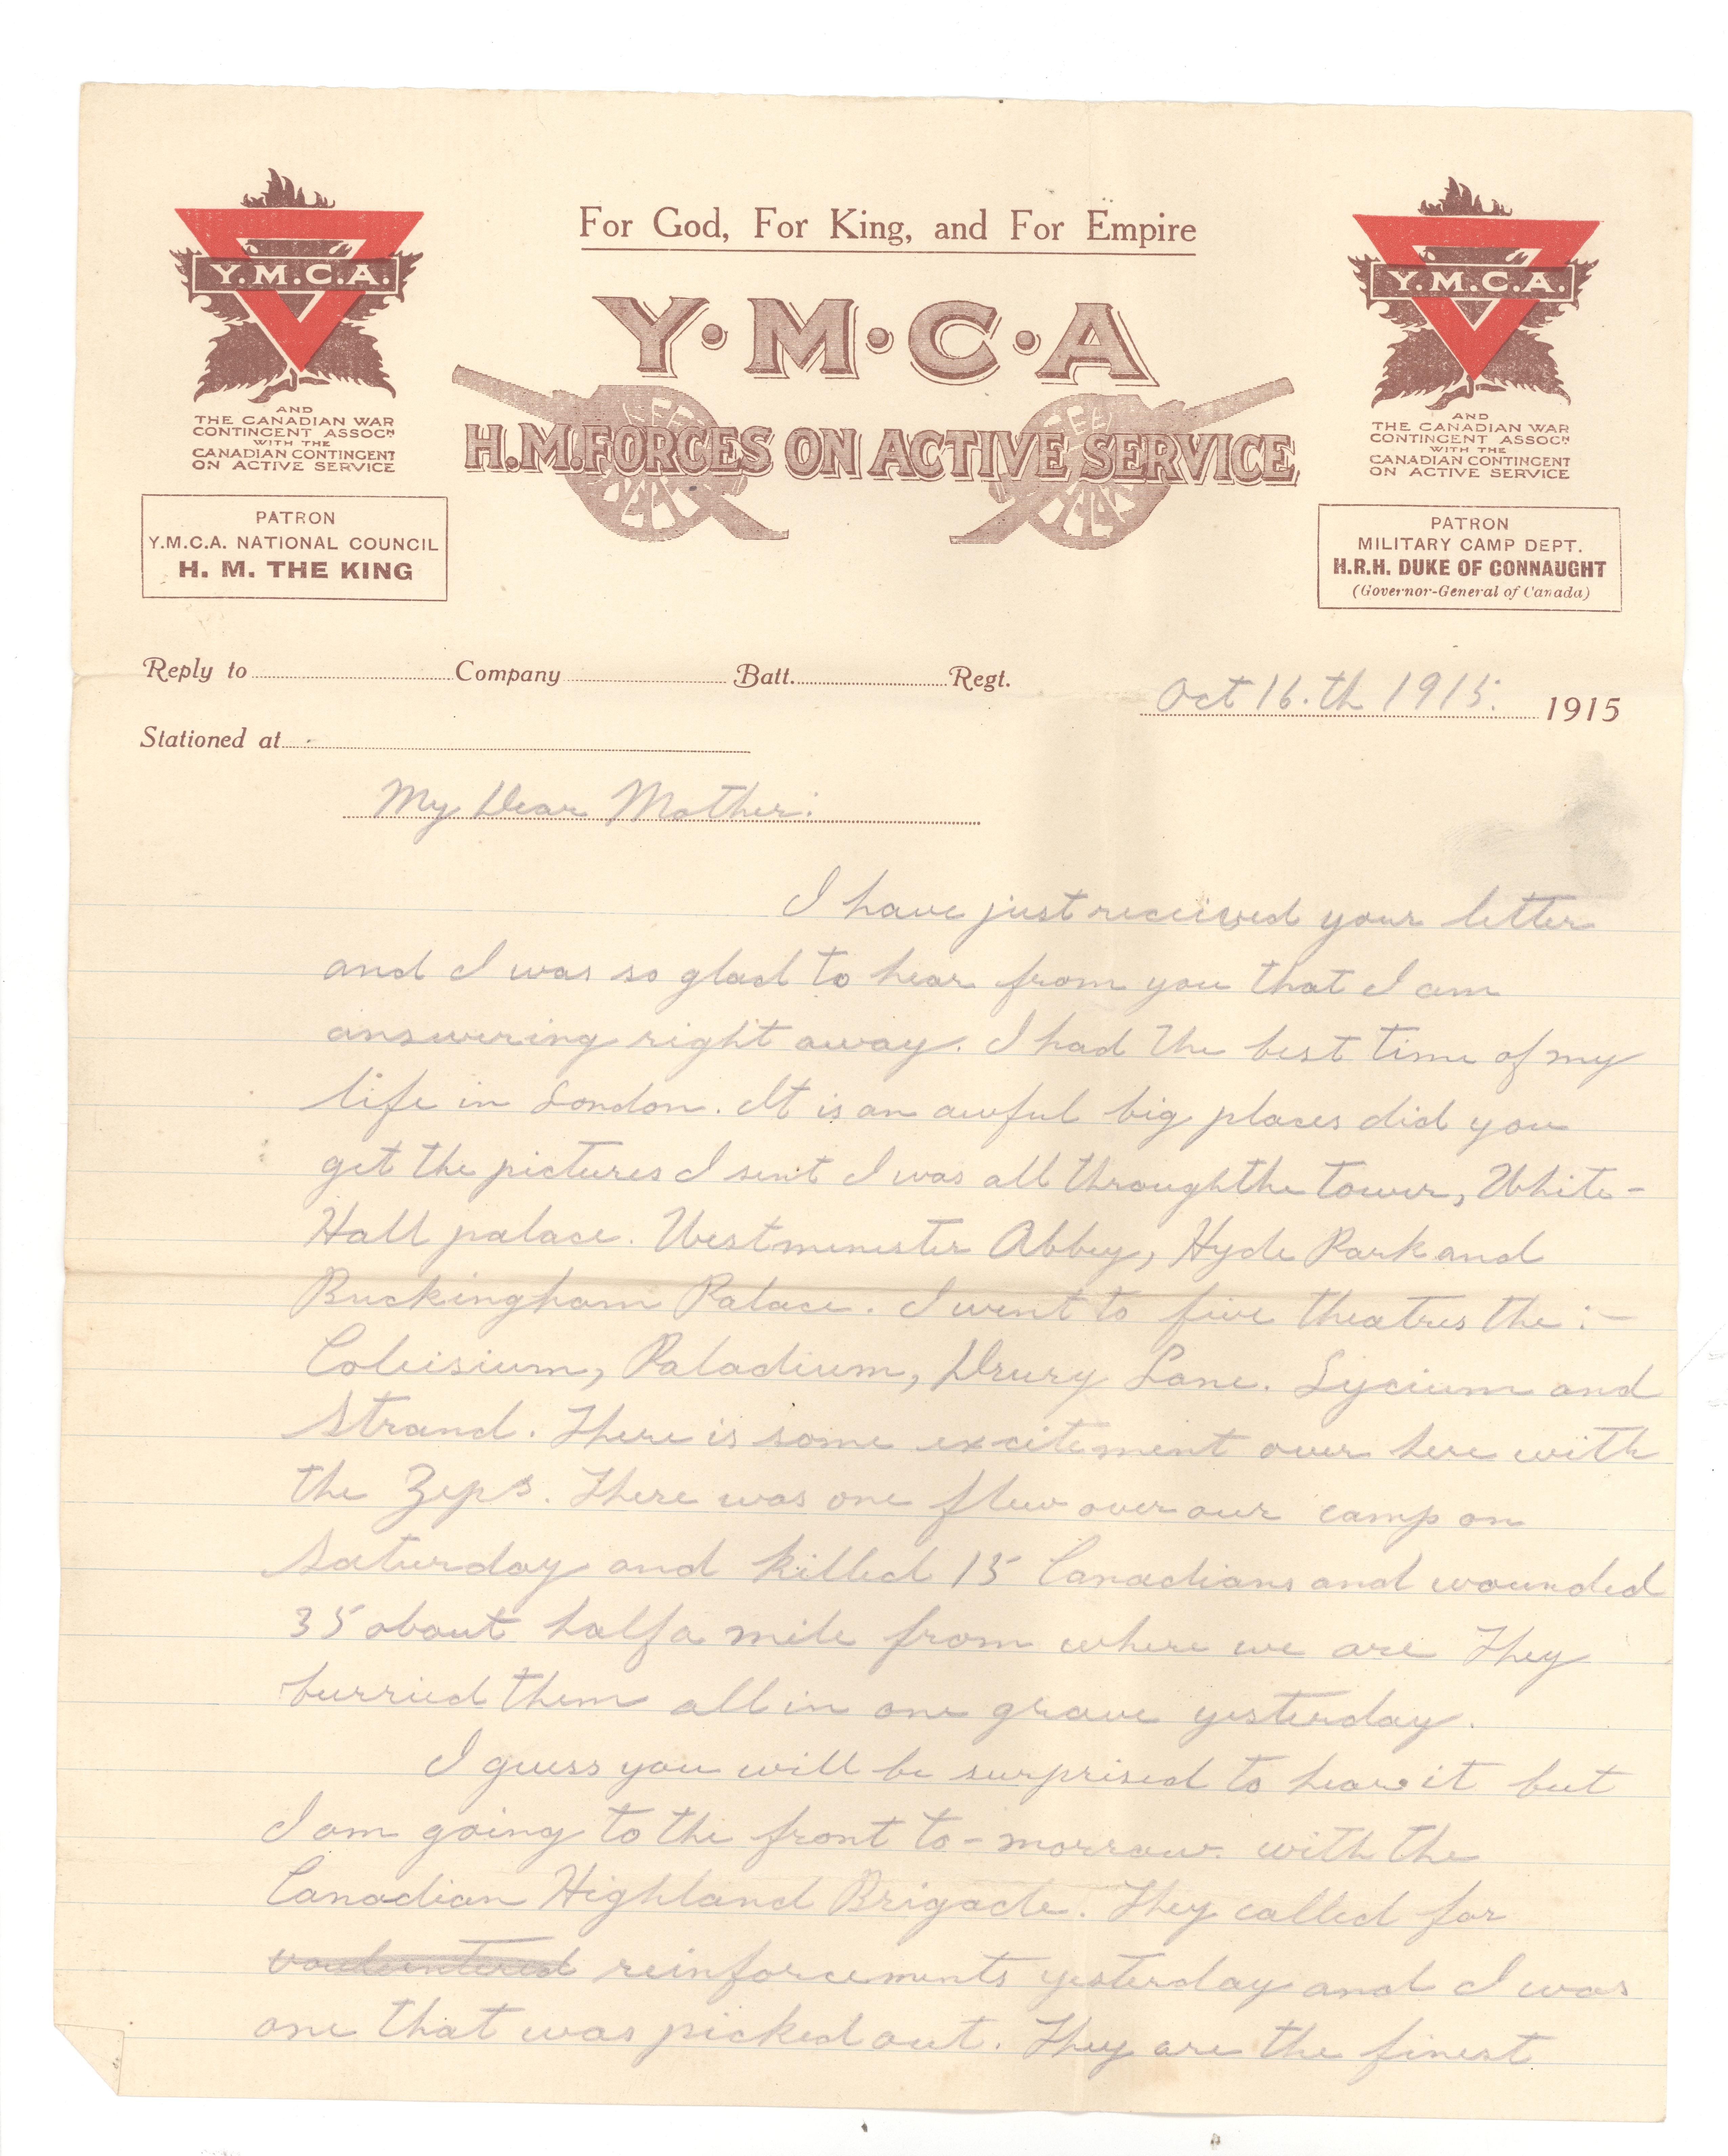 For God, For King, and For Empire
Y.M.C.A.
Y·M·C·A
Y.M.C.A.
H.M. FORCES ON ACTIVE SERVICE
AND
THE CANADIAN WAR
CONTINGENT ASSOCN
WITH THE
CANADIAN CONTINGENT
ON ACTIVE SERVICE
AND
THE CANADIAN WAR
CONTINGENT ASSOCN
WITH THE
CANADIAN CONTINGENT
ON ACTIVE SERVICE
PATRON
Y.M.C.A. NATIONAL COUNCIL
H. M. THE KING
PATRON
MILITARY CAMP DEPT.
H.R.H. DUKE OF CONNAUGHT
(Governor-General of Canada)
Reply to Company Batt. Regt.
Oct 16.th 1915. 1915
Stationed at
My Dear Mother:
I have just received your letter
and I was so glad to hear from you that I am
answering right away. I had the best time of my
life in London. It is an awful big places did you
get the pictures I sent I was all through the tower, White-
Hall palace. Westmenester Abbey, Hyde Park and
Buckingham Palace. I went to five theatres the:-
Coleisium, Paladium, Drury Lane. Lycium and
Strand. There is some excitement over here with
the Zeps. There was one flew over our camp on
Saturday and killed 15 Canadians and wounded
35 about half a mile from where we are They
burried them all in one grave yesterday.
I guess you will be surprised to hear it but
I am going to the front to-morrow. with the
Canadian Highland Brigade. They called for
reinforcements yesterday and I was
one that was picked out. They are the finest